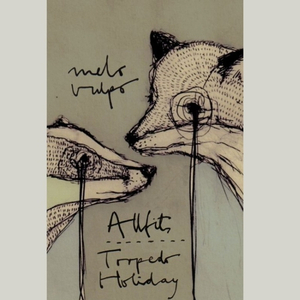 mels
vulpo
Allfits
Torpedo
Holiday